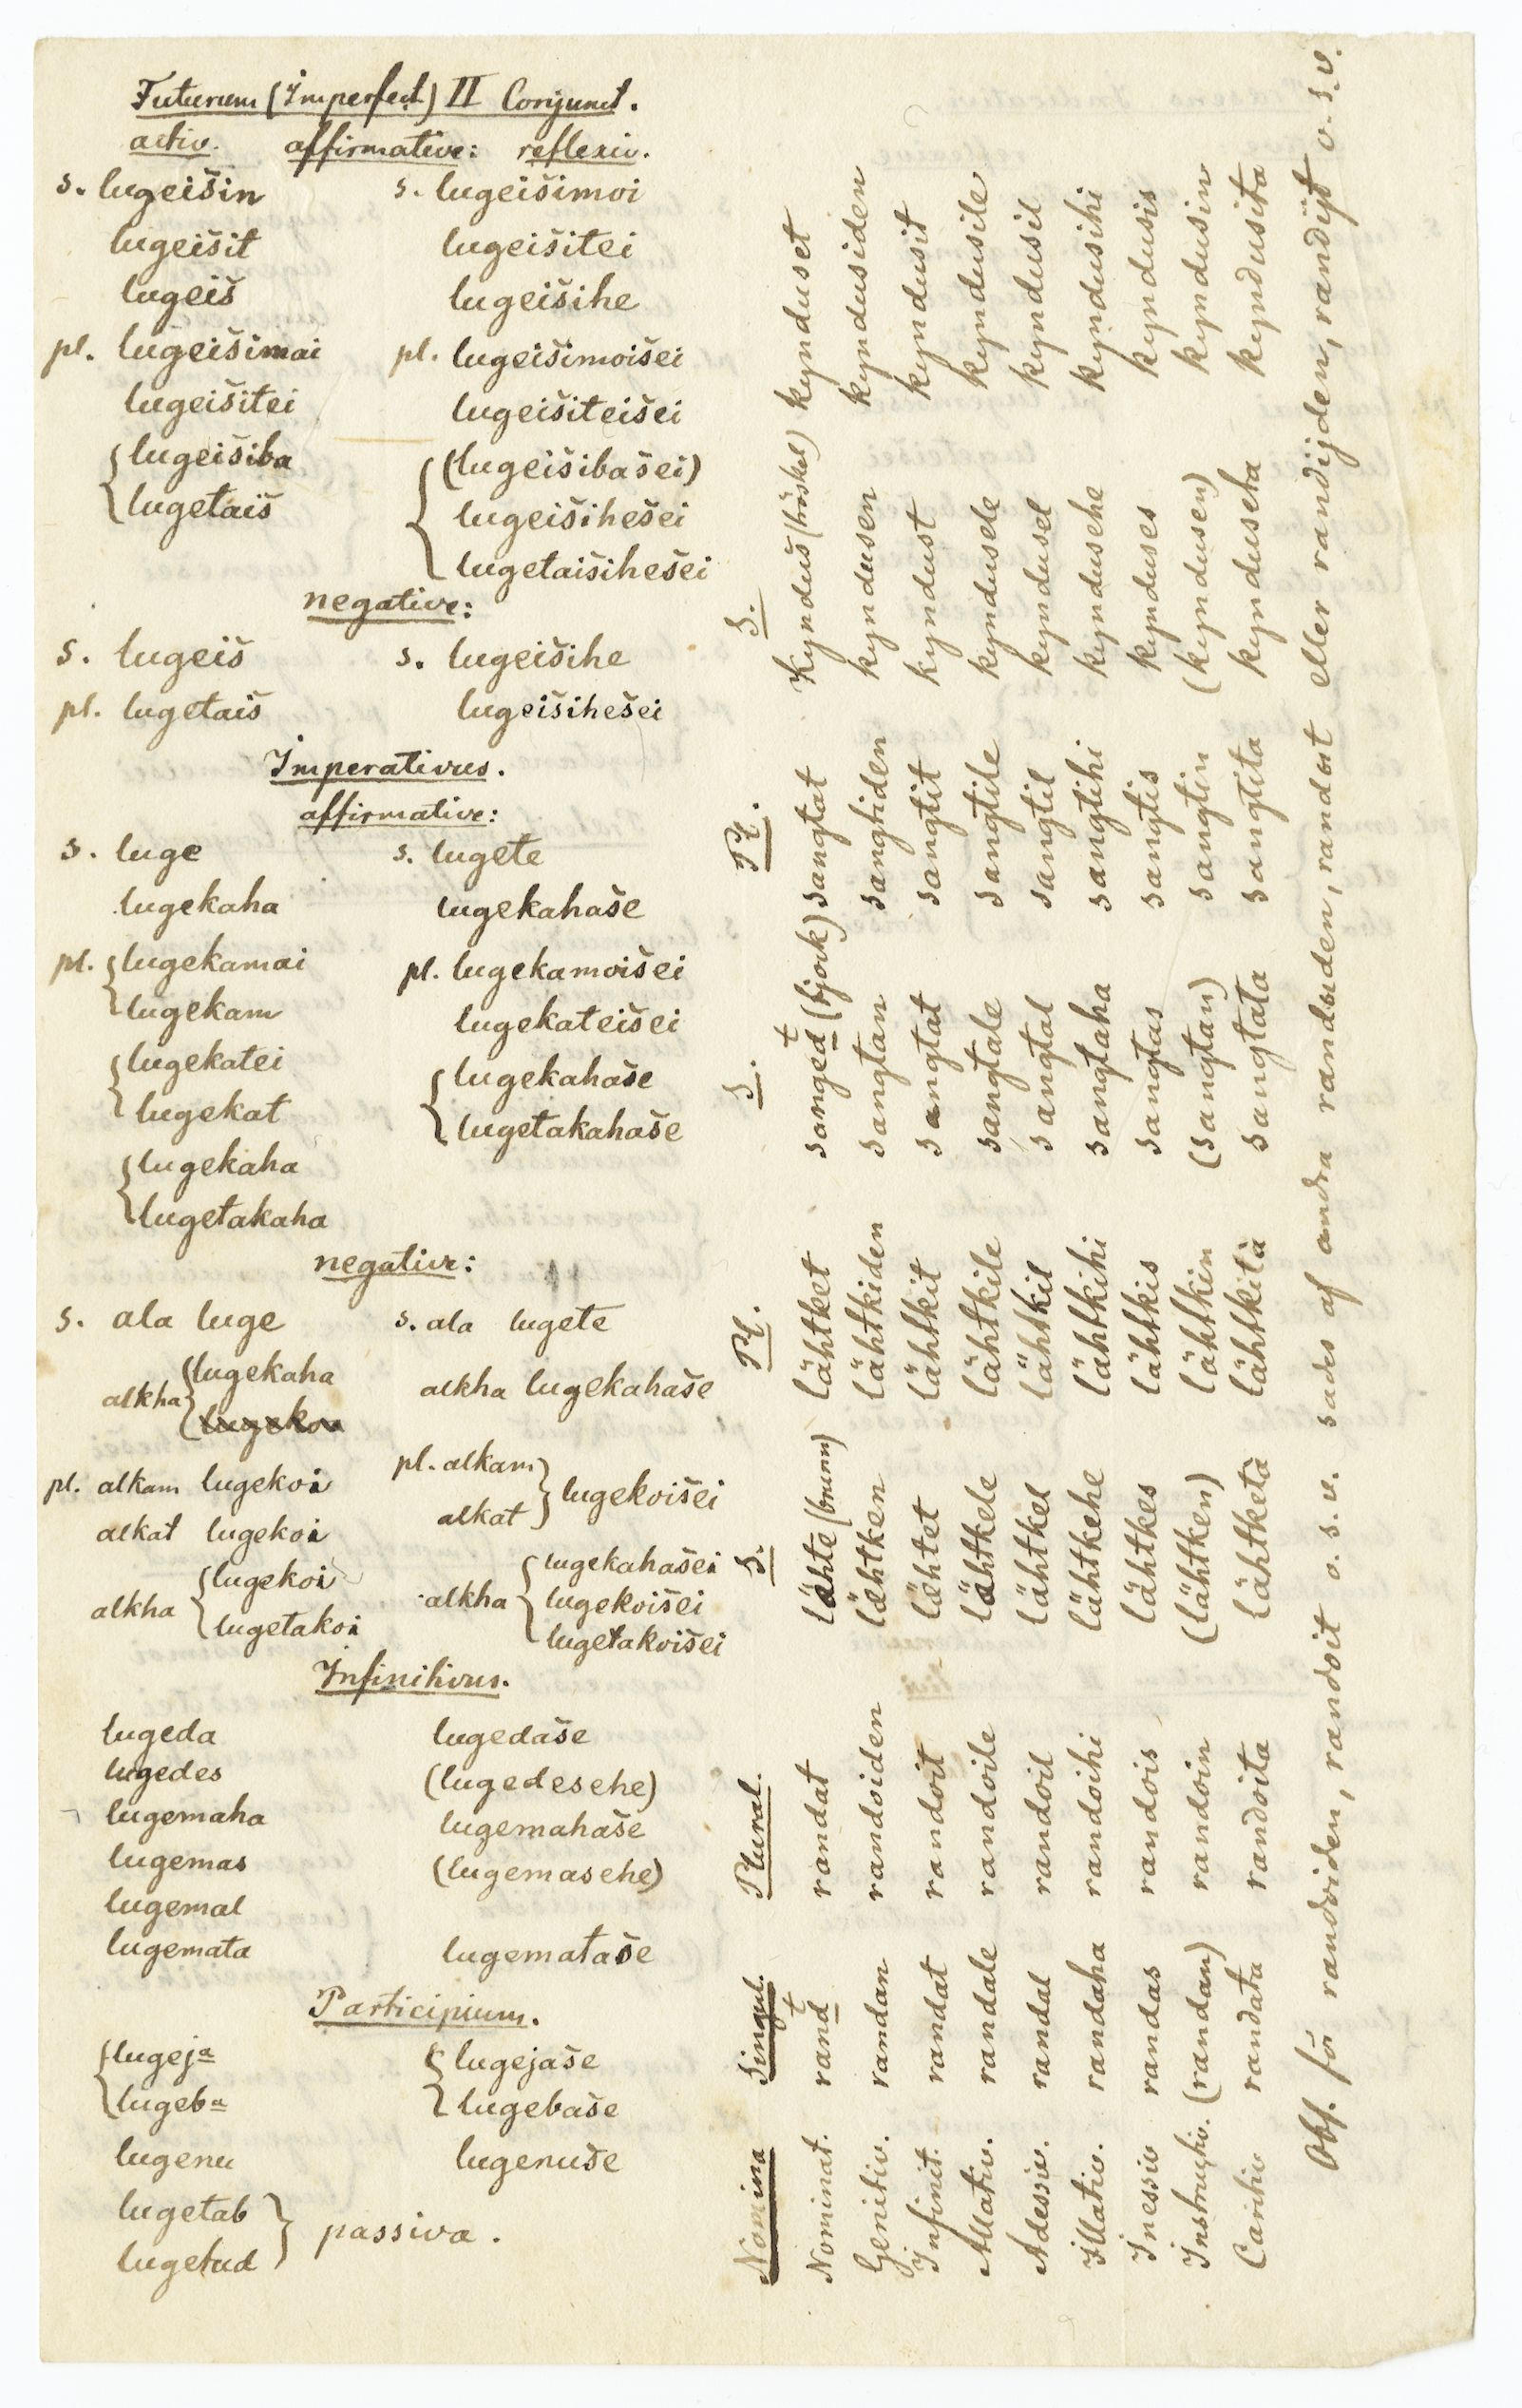 Futurum (Imperfect) II Conjunct.
activ. affirmative: reflexiv.
s. lugeišin s. lugeišimoi
lugeišit lugeišitei
lugeiš lugeišihe
pl. lugeišimai pl. lugeišimoišei
lugeišitei lugeišiteišei
lugeišiba (lugeišibašei)
lugetaiš lugeišihešei
lugetaišihešei
negative:
s. lugeiš s. lugeišihe
pl. lugetaiš lugeišihešei
Imperativus.
affirmative:
s. luge s. lugete
lugekaha lugekahaše
pl. lugekamai pl. lugekamoišei
lugekam lugekateišei
lugekatei lugekahaše
lugekat lugetakahaše
lugekaha
lugetakaha
negative:
s. ala luge s. ala lugete
alkha lugekaha alkha lugekahaše
lugekoa
pl. alkam lugekoi pl. alkam lugekoišei
alkat lugekoi alkat
alkha lugekoi alkha lugekahašei
lugetakoi lugekoišei
lugetakoišei
Infinitivus.
lugeda lugedaše
lugedes (lugedesehe)
lugemaha lugemahaše
lugemas (lugemasehe)
lugemal
lugemata lugemataše
Participium.
lugeja lugejaše
lugeba lugebaše
lugenu lugenuše
lugetab passiva.
lugetud
Nomina Singul. Plural. S. Pl. S. Pl. S.
Nominat. rand t randat lähte (brunn) lähtket sanged t (bjork) sangtat Kynduš (hőskel) kynduset
Genitiv. randan randoiden lähtken lähtkiden sangtan sangtiden kyndusen kyndusiden
Infinit. randat randoit lähtet lähtkit sangtat sangtit kyndust kyndusit
Allativ. randale randoile lähtkele lähtkile sangtale sangtile kyndusele kyndusile
Adessiv. randal randoil lähtkel lähtkil sangtal sangtil kyndusel kyndusil
Illativ. randaha randoihi lähtkehe lähtkihi sangtaha sangtihi kyndusehe kyndusihi
Inessiv randas randois lähtkes lähtkis sangtas sangtis kynduses kyndusis
Instructiv. (randan) randoin (lähtken) lähtkin (sangtan) sangtin (kyndusen) kyndusin
Caritiv randata randoita lähtketa lähtkita sangtata sangtita kynduseta kyndusita
Obs. för randoiden, randoit o. s. v. sades af andra randuden, randut eller randijden, randijt o. s. v.